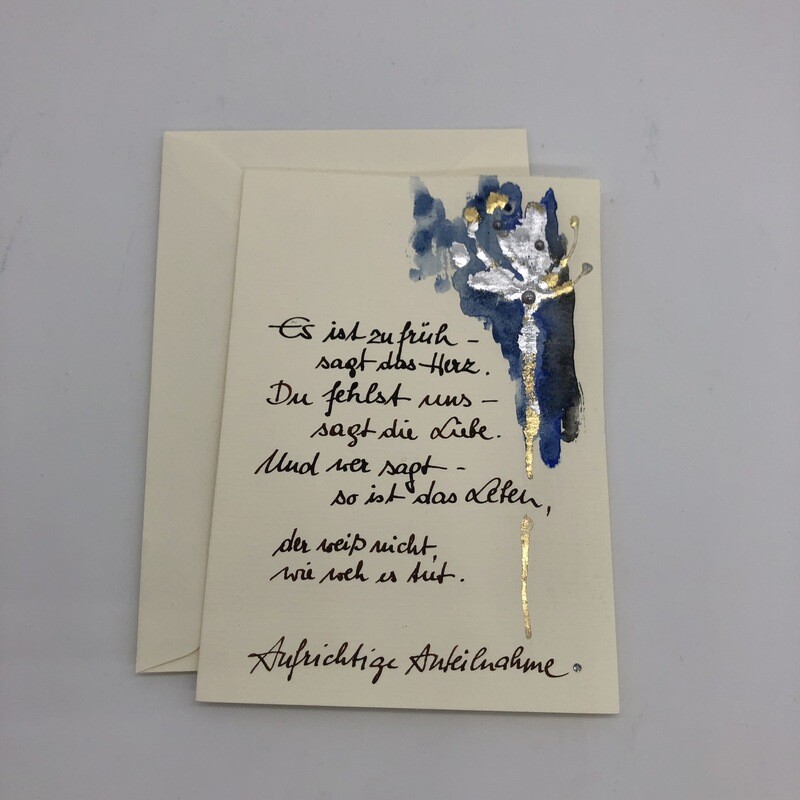 Es ist zu früh –
sagt das Herz.
Du fehlst uns –
sagt die Liebe.
Und wer sagt –
so ist das Leben,
der weiß nicht,
wie weh es tut.
Aufrichtige Anteilnahme.